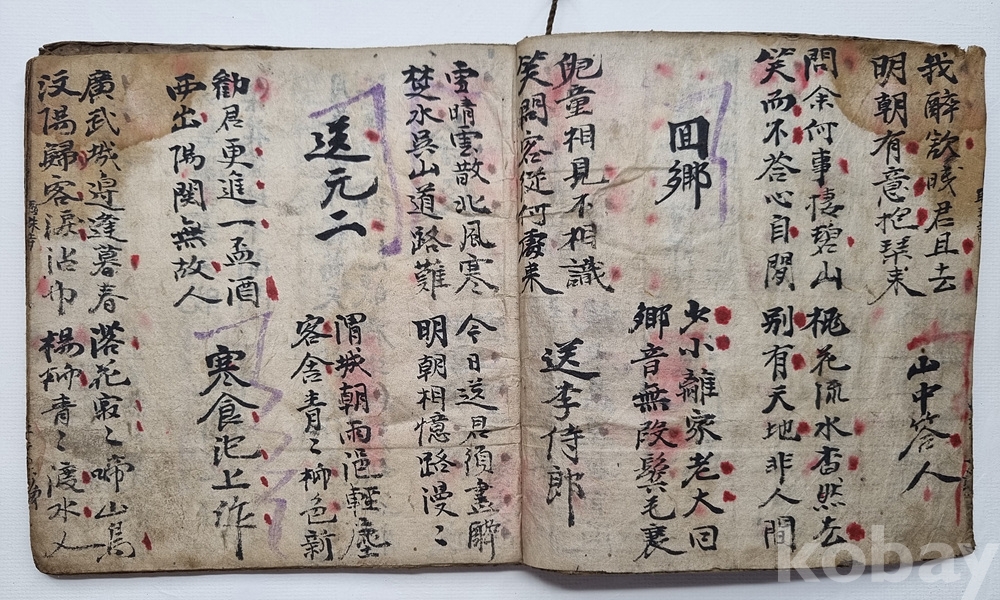 我醉欲眠君且去
明朝有意抱琴来
山中答人
問余何事棲碧山
笑而不答心自閒
桃花流水杳然去
別有天地非人間
回鄉
少小離家老大回
鄉音無改鬢毛衰
兒童相見不相識
笑問客從何處来
送李侍郎
雪晴雲散北風寒
楚水吳山道路難
今日送君須盡醉
明朝相憶路漫〻
送元二
渭城朝雨浥輕塵
客舍青〻柳色新
勸君更進一盃酒
西出陽関無故人
寒食汜上作
廣武城邊逢暮春
汶陽歸客淚沾巾
落花寂〻啼山鳥
楊柳青〻渡水人
kobay